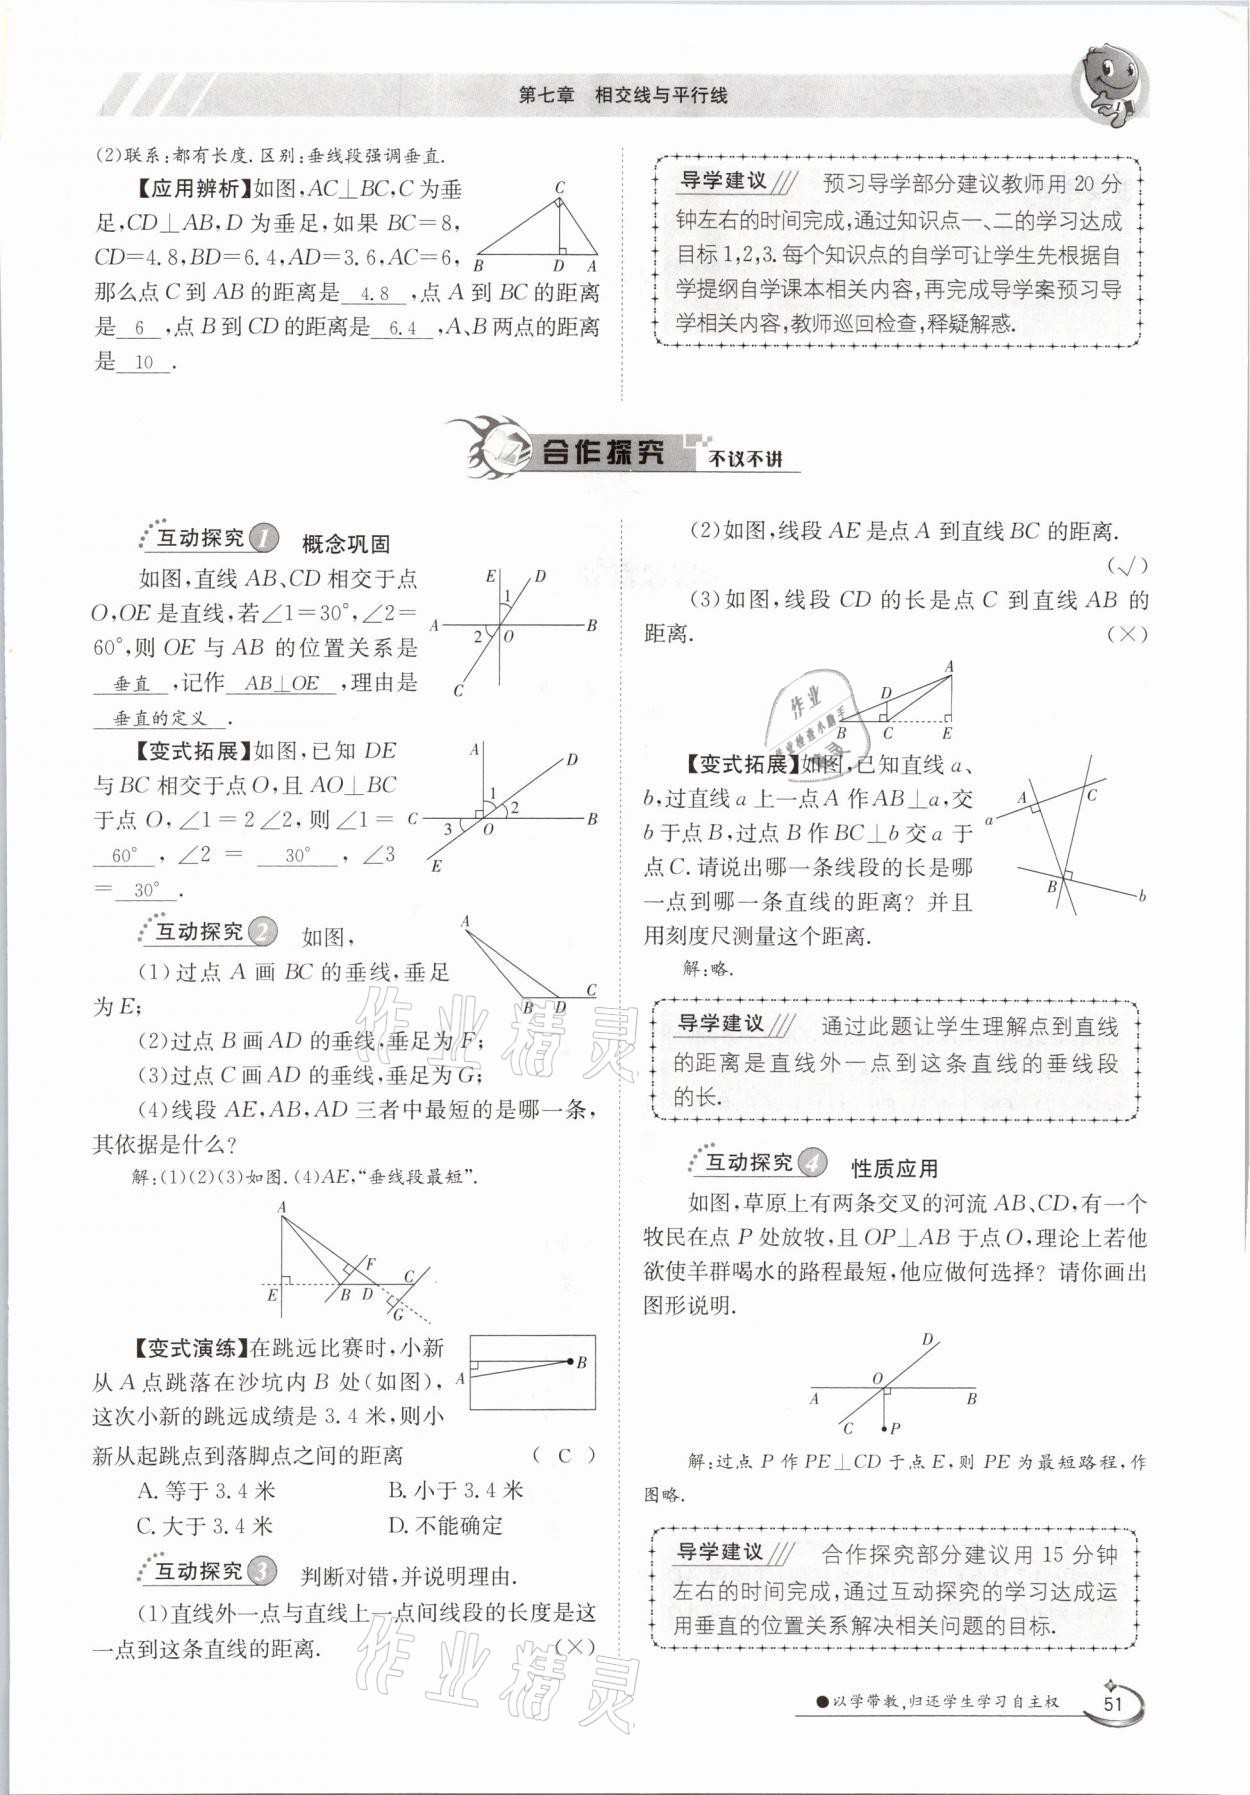 第七章　相交线与平行线
(2)联系:都有长度.区别:垂线段强调垂直.
【应用辨析】如图,AC⊥BC,C为垂
足,CD⊥AB,D为垂足,如果BC=8,
CD=4.8,BD=6.4,AD=3.6,AC=6,
那么点C到AB的距离是 4.8 ,点A到BC的距离
是 6 ,点B到CD的距离是 6.4 ,A、B两点的距离
是 10 .
C
B D A
导学建议 预习导学部分建议教师用20分
钟左右的时间完成,通过知识点一、二的学习达成
目标1,2,3.每个知识点的自学可让学生先根据自
学提纲自学课本相关内容,再完成导学案预习导
学相关内容,教师巡回检查,释疑解惑.
合作探究 不议不讲
互动探究1 概念巩固
如图,直线AB、CD相交于点
O,OE是直线,若∠1=30°,∠2=
60°,则OE与AB的位置关系是
垂直 ,记作 AB⊥OE ,理由是
垂直的定义 .
E D
1
A B
2 O
C
【变式拓展】如图,已知DE
与BC相交于点O,且AO⊥BC
于点O,∠1=2∠2,则∠1=
60° ,∠2 = 30° ,∠3
= 30° .
A D
1 2
C B
3 O
E
互动探究2 如图,
(1)过点A画BC的垂线,垂足
为E;
(2)过点B画AD的垂线,垂足为F;
(3)过点C画AD的垂线,垂足为G;
(4)线段AE,AB,AD三者中最短的是哪一条,
其依据是什么?
A
C
B D
解:(1)(2)(3)如图.(4)AE,“垂线段最短”.
A
F
C
E B D
G
【变式演练】在跳远比赛时,小新
从A点跳落在沙坑内B处(如图),
这次小新的跳远成绩是3.4米,则小
新从起跳点到落脚点之间的距离 ( C )
A B
A.等于3.4米 B.小于3.4米
C.大于3.4米 D.不能确定
互动探究3 判断对错,并说明理由.
(1)直线外一点与直线上一点间线段的长度是这
一点到这条直线的距离. (×)
(2)如图,线段AE是点A到直线BC的距离.
(√)
(3)如图,线段CD的长是点C到直线AB的
距离. (×)
A
D
B C E
【变式拓展】如图,已知直线a、
b,过直线a上一点A作AB⊥a,交
b于点B,过点B作BC⊥b交a于
点C.请说出哪一条线段的长是哪
一点到哪一条直线的距离?并且
用刻度尺测量这个距离.
A C
a
B
b
解:略.
导学建议 通过此题让学生理解点到直线
的距离是直线外一点到这条直线的垂线段
的长.
互动探究4 性质应用
如图,草原上有两条交叉的河流AB、CD,有一个
牧民在点P处放牧,且OP⊥AB于点O,理论上若他
欲使羊群喝水的路程最短,他应做何选择?请你画出
图形说明.
D
O
A B
C P
解:过点P作PE⊥CD于点E,则PE为最短路程,作
图略.
导学建议 合作探究部分建议用15分钟
左右的时间完成,通过互动探究的学习达成运
用垂直的位置关系解决相关问题的目标.
●以学带教,归还学生学习自主权
51
作业精灵
作业精灵
作业
作业检查小助手